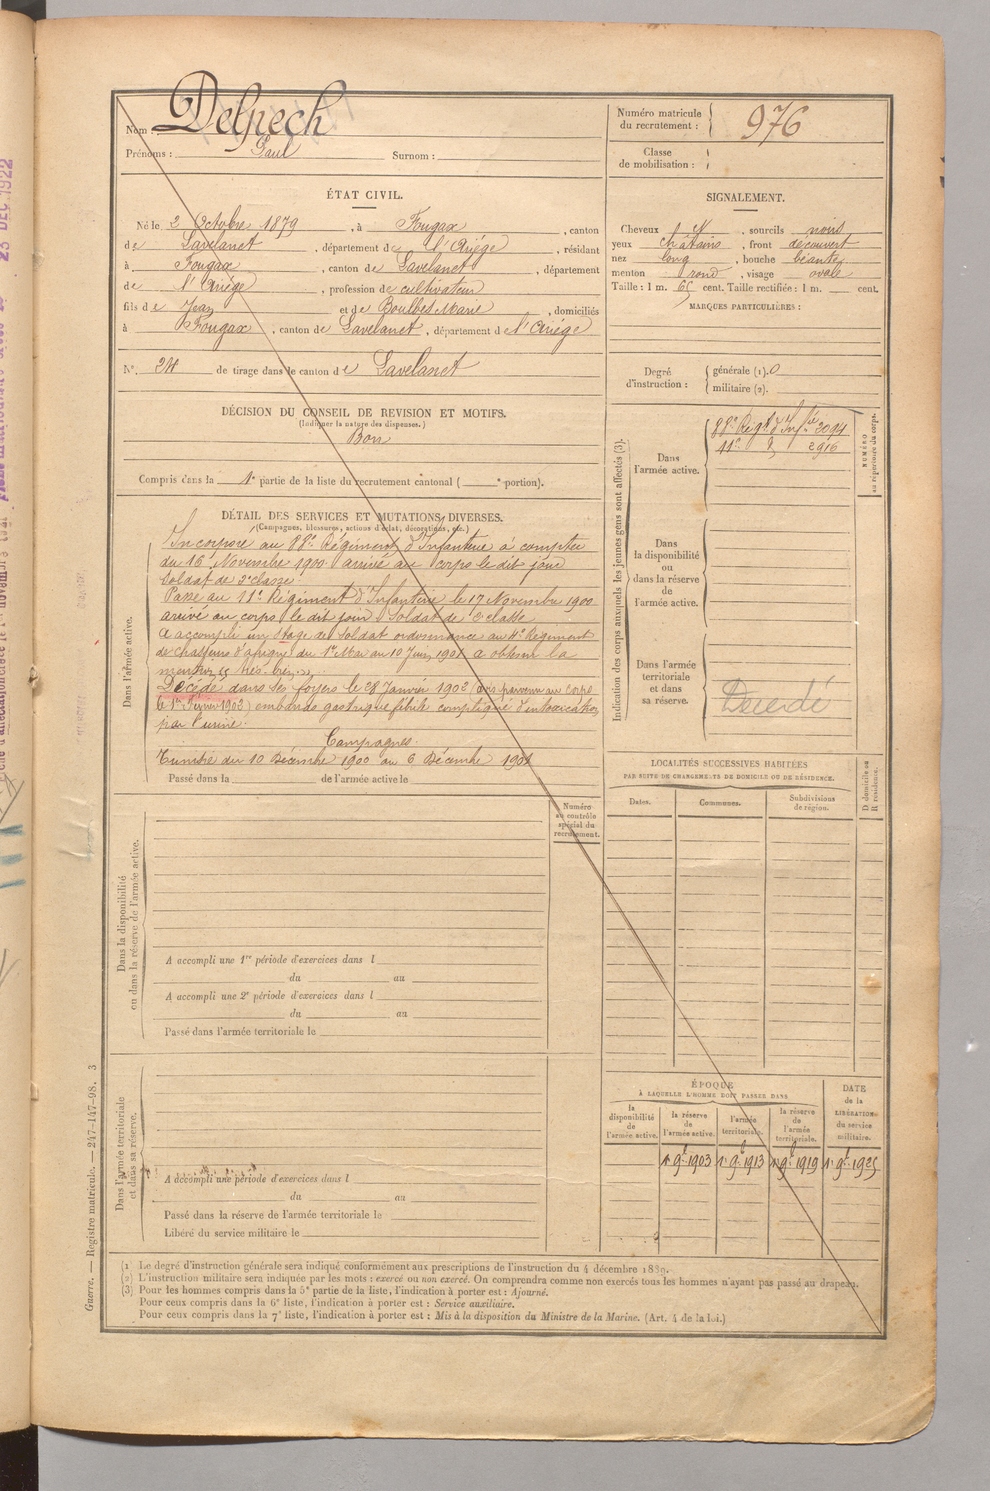 Nom : Delpech
Prénoms : Paul Surnom :
Numéro matricule du recrutement : 976
Classe de mobilisation :
ÉTAT CIVIL.
Né le 2 Octobre 1879, à Fougax, canton
de Lavelanet, département de l'Ariége, résidant
à Fougax, canton de Lavelanet, département
de l'Ariége, profession de cultivateur
fils de Jean et de Boulbes Marie, domiciliés
à Fougax, canton de Lavelanet, département de l'Ariége
N° 24 de tirage dans le canton de Lavelanet
SIGNALEMENT.
Cheveux , sourcils noirs
yeux chatains, front découvert
nez long, bouche béante
menton rond, visage ovale
Taille : 1 m. 65 cent. Taille rectifiée : 1 m. cent.
MARQUES PARTICULIÈRES :
Degré d'instruction : générale (1). 0
militaire (2).
DÉCISION DU CONSEIL DE REVISION ET MOTIFS.
(Indiquer la nature des dispenses.)
Bon
Compris dans la 1e partie de la liste du recrutement cantonal ( e portion).
DÉTAIL DES SERVICES ET MUTATIONS DIVERSES.
(Campagnes, blessures, actions d'éclat, décorations, etc.)
Dans l'armée active.
Incorporé au 88e Régiment d'Infanterie à compter
du 16 Novembre 1900. arrivé au corps le dit jour
Soldat de 2e classe
Passé au 11e Régiment d'Infanterie le 17 Novembre 1900
arrivé au corps le dit jour Soldat de 2e classe
a accompli un stage de Soldat ordonnance au 4e Régiment
de chasseurs d'afrique du 1er Mai au 10 Juin 1901 a obtenu la
mention très bien.
Décédé dans ses foyers le 28 Janvier 1902 (avis parvenu au corps
le 1er Février 1902) embarras gastrique fébrile compliqué d'intoxication
par l'urine.
Campagnes.
Tunisie du 10 Décembre 1900 au 6 Décembre 1901
Passé dans la de l'armée active le
Indication des corps auxquels les jeunes gens sont affectés (3).
NUMÉRO au répertoire du corps.
Dans l'armée active.
88e Régt d'Infie 2094
11e 2916
Dans la disponibilité ou dans la réserve de l'armée active.
Dans l'armée territoriale et dans sa réserve.
Décédé
LOCALITÉS SUCCESSIVES HABITÉES
PAR SUITE DE CHANGEMENTS DE DOMICILE OU DE RÉSIDENCE.
Dates. Communes. Subdivisions de région. D domicile ou R résidence.
Numéro au contrôle spécial du recrutement.
Dans la disponibilité ou dans la réserve de l'armée active.
A accompli une 1re période d'exercices dans l
du au
A accompli une 2e période d'exercices dans l
du au
Passé dans l'armée territoriale le
Dans l'armée territoriale et dans sa réserve.
A accompli une période d'exercices dans l
du au
Passé dans la réserve de l'armée territoriale le
Libéré du service militaire le
ÉPOQUE
À LAQUELLE L'HOMME DOIT PASSER DANS
la disponibilité de l'armée active.
la réserve de l'armée active.
l'armée territoriale.
la réserve de l'armée territoriale.
DATE de la LIBÉRATION du service militaire.
1er 9bre 1903 1er 9bre 1913 1er 9bre 1919 1er 9bre 1925
(1) Le degré d'instruction générale sera indiqué conformément aux prescriptions de l'instruction du 4 décembre 1889.
(2) L'instruction militaire sera indiquée par les mots : exercé ou non exercé. On comprendra comme non exercés tous les hommes n'ayant pas passé au drapeau.
(3) Pour les hommes compris dans la 5e partie de la liste, l'indication à porter est : Ajourné.
Pour ceux compris dans la 6e liste, l'indication à porter est : Service auxiliaire.
Pour ceux compris dans la 7e liste, l'indication à porter est : Mis à la disposition du Ministre de la Marine. (Art. 4 de la loi.)
Guerre. — Registre matricule. — 247-147-98. 3
23 DEC 1922